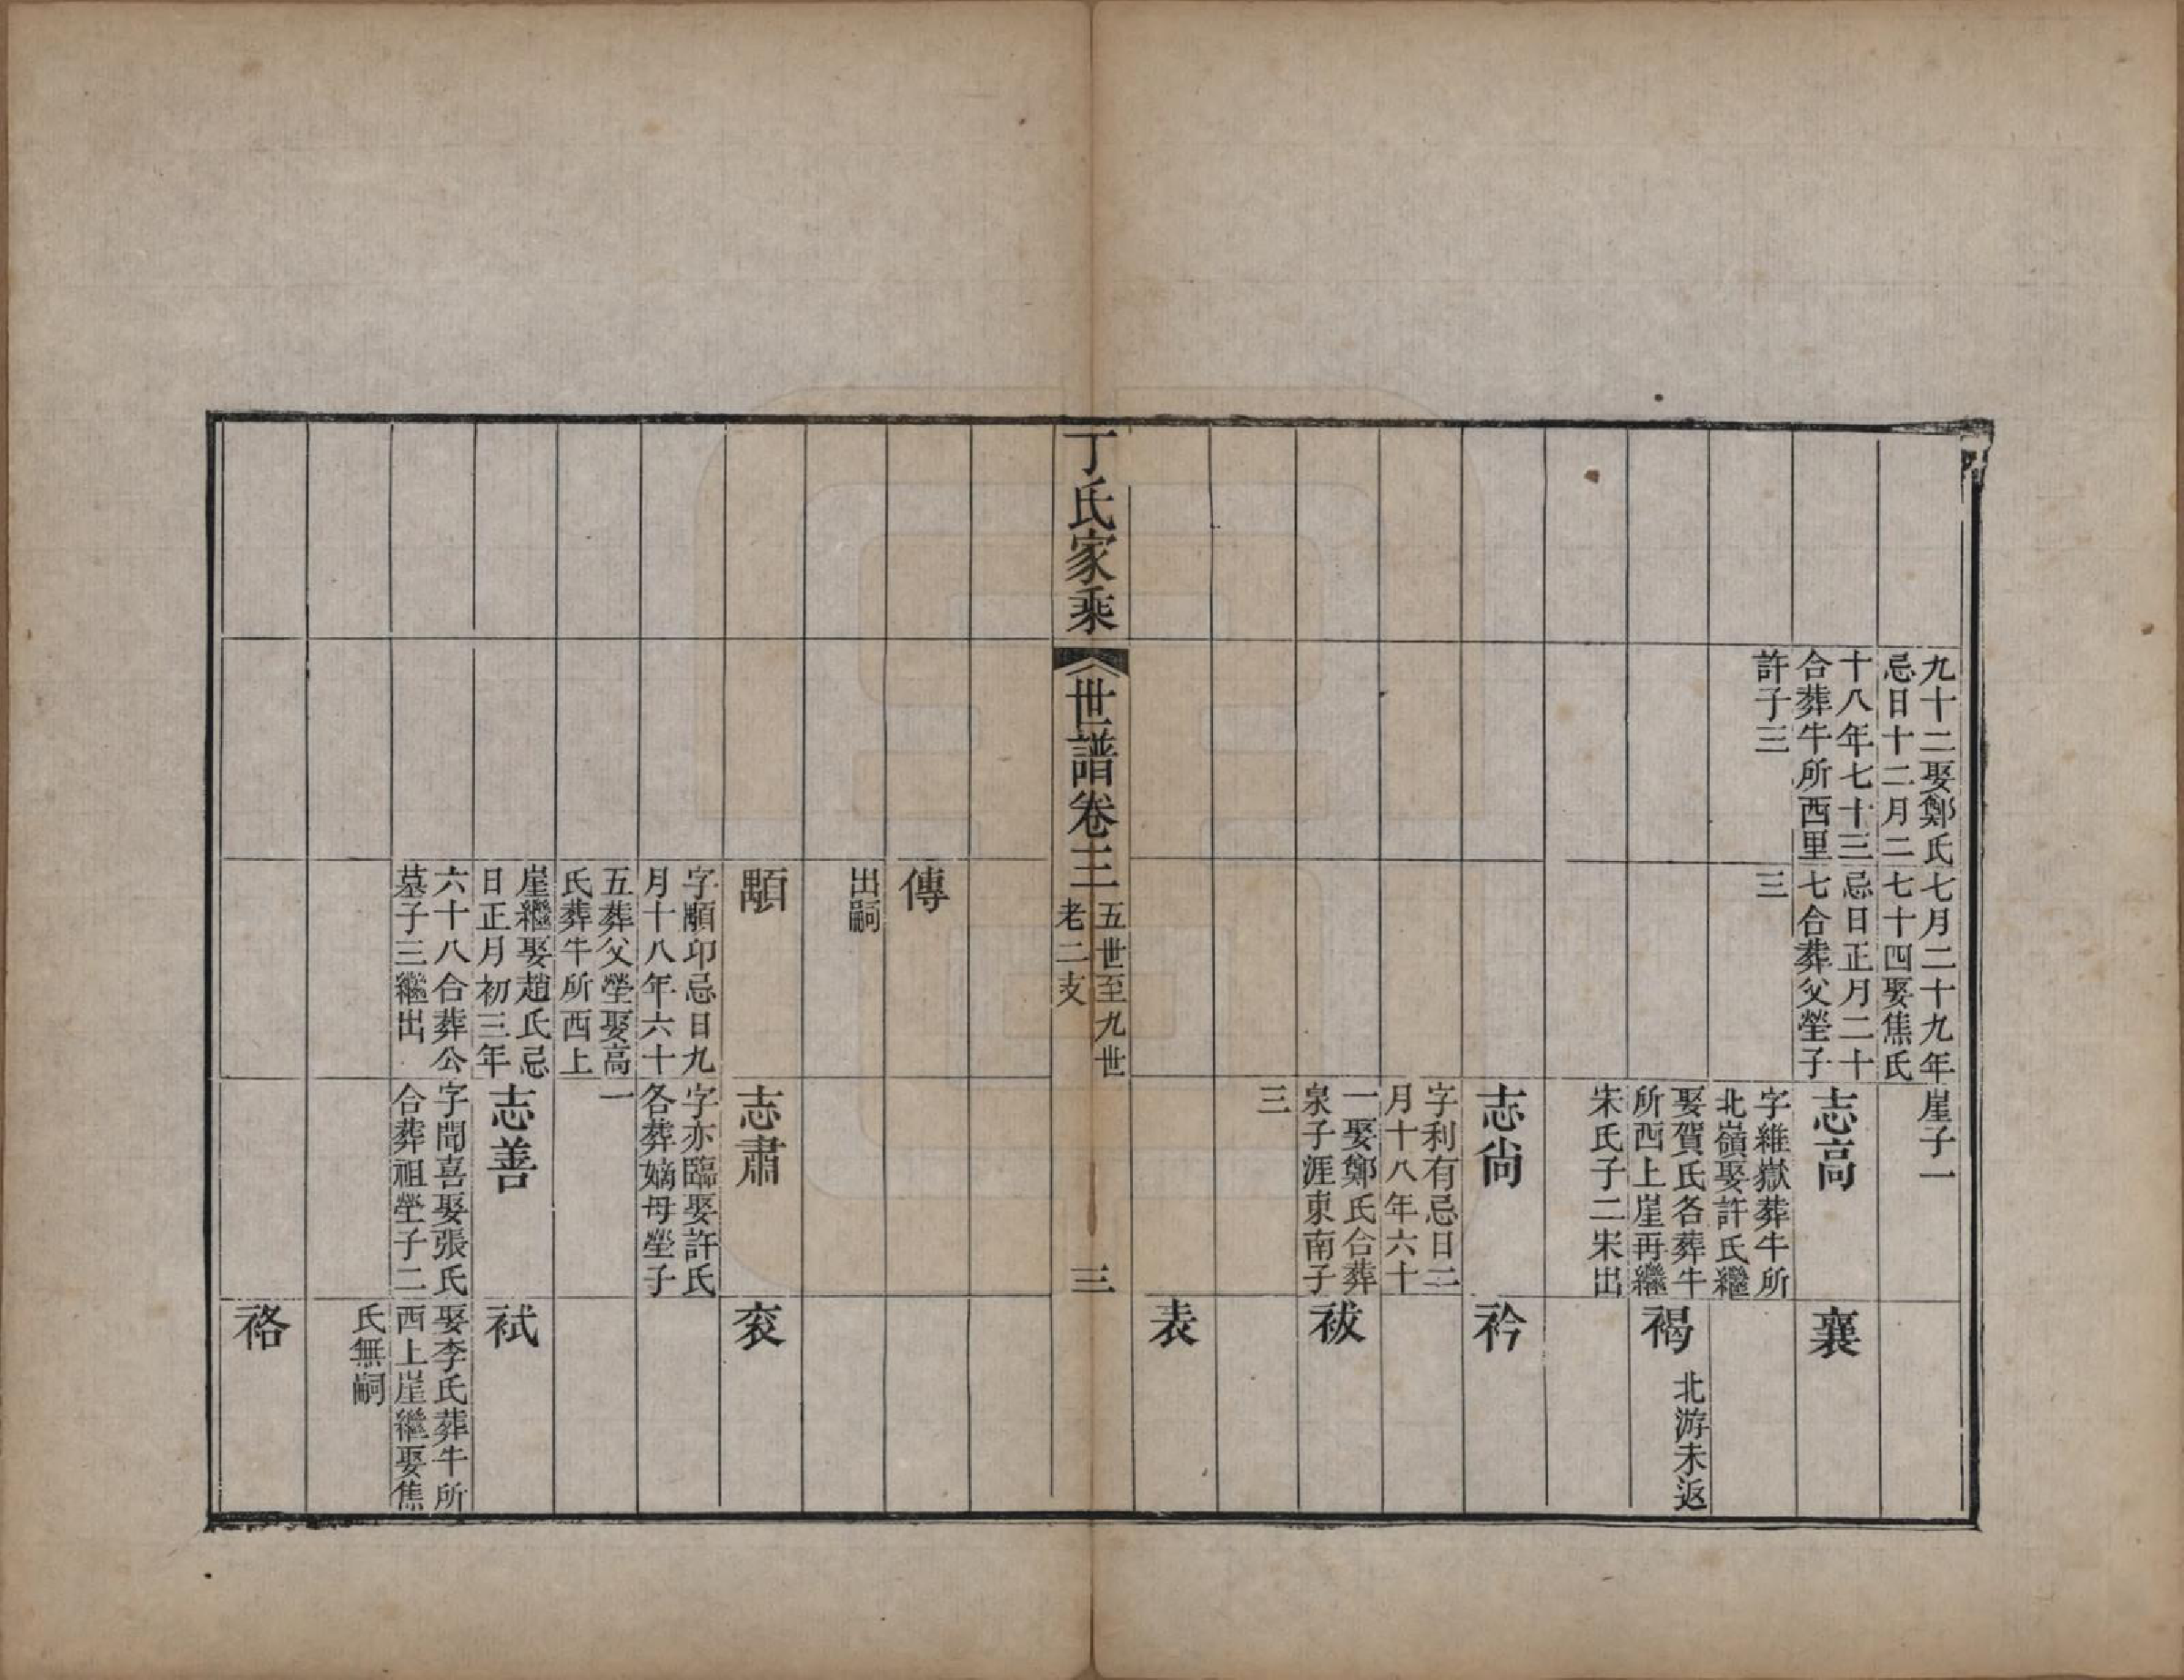 九十二娶鄭氏
忌日十二月二
十八年七十三
合葬牛所西里
許子三
七月二十九年
七十四娶焦氏
忌日正月二十
七合葬父塋子
三
崖子一
志高
字維嶽葬牛所
北嶺娶許氏繼
娶賀氏各葬牛
所西上崖再繼
宋氏子二宋出
志尙
字利有忌日二
月十八年六十
一娶鄭氏合葬
泉子涯東南子
三
襄
褐
北游未返
衿
袚
表
丁氏家乘
世譜卷三
五世至九世
老二支
三
傳
出嗣
顒
字顒卬忌日九
月十八年六十
五葬父塋娶高
氏葬牛所西上
崖繼娶趙氏忌
日正月初三年
六十八合葬公
墓子三繼出
志肅
字亦臨娶許氏
各葬嫡母塋子
一
志善
字聞喜娶張氏
合葬祖塋子二
衮
袛
娶李氏葬牛所
西上崖繼娶焦
氏無嗣
袼